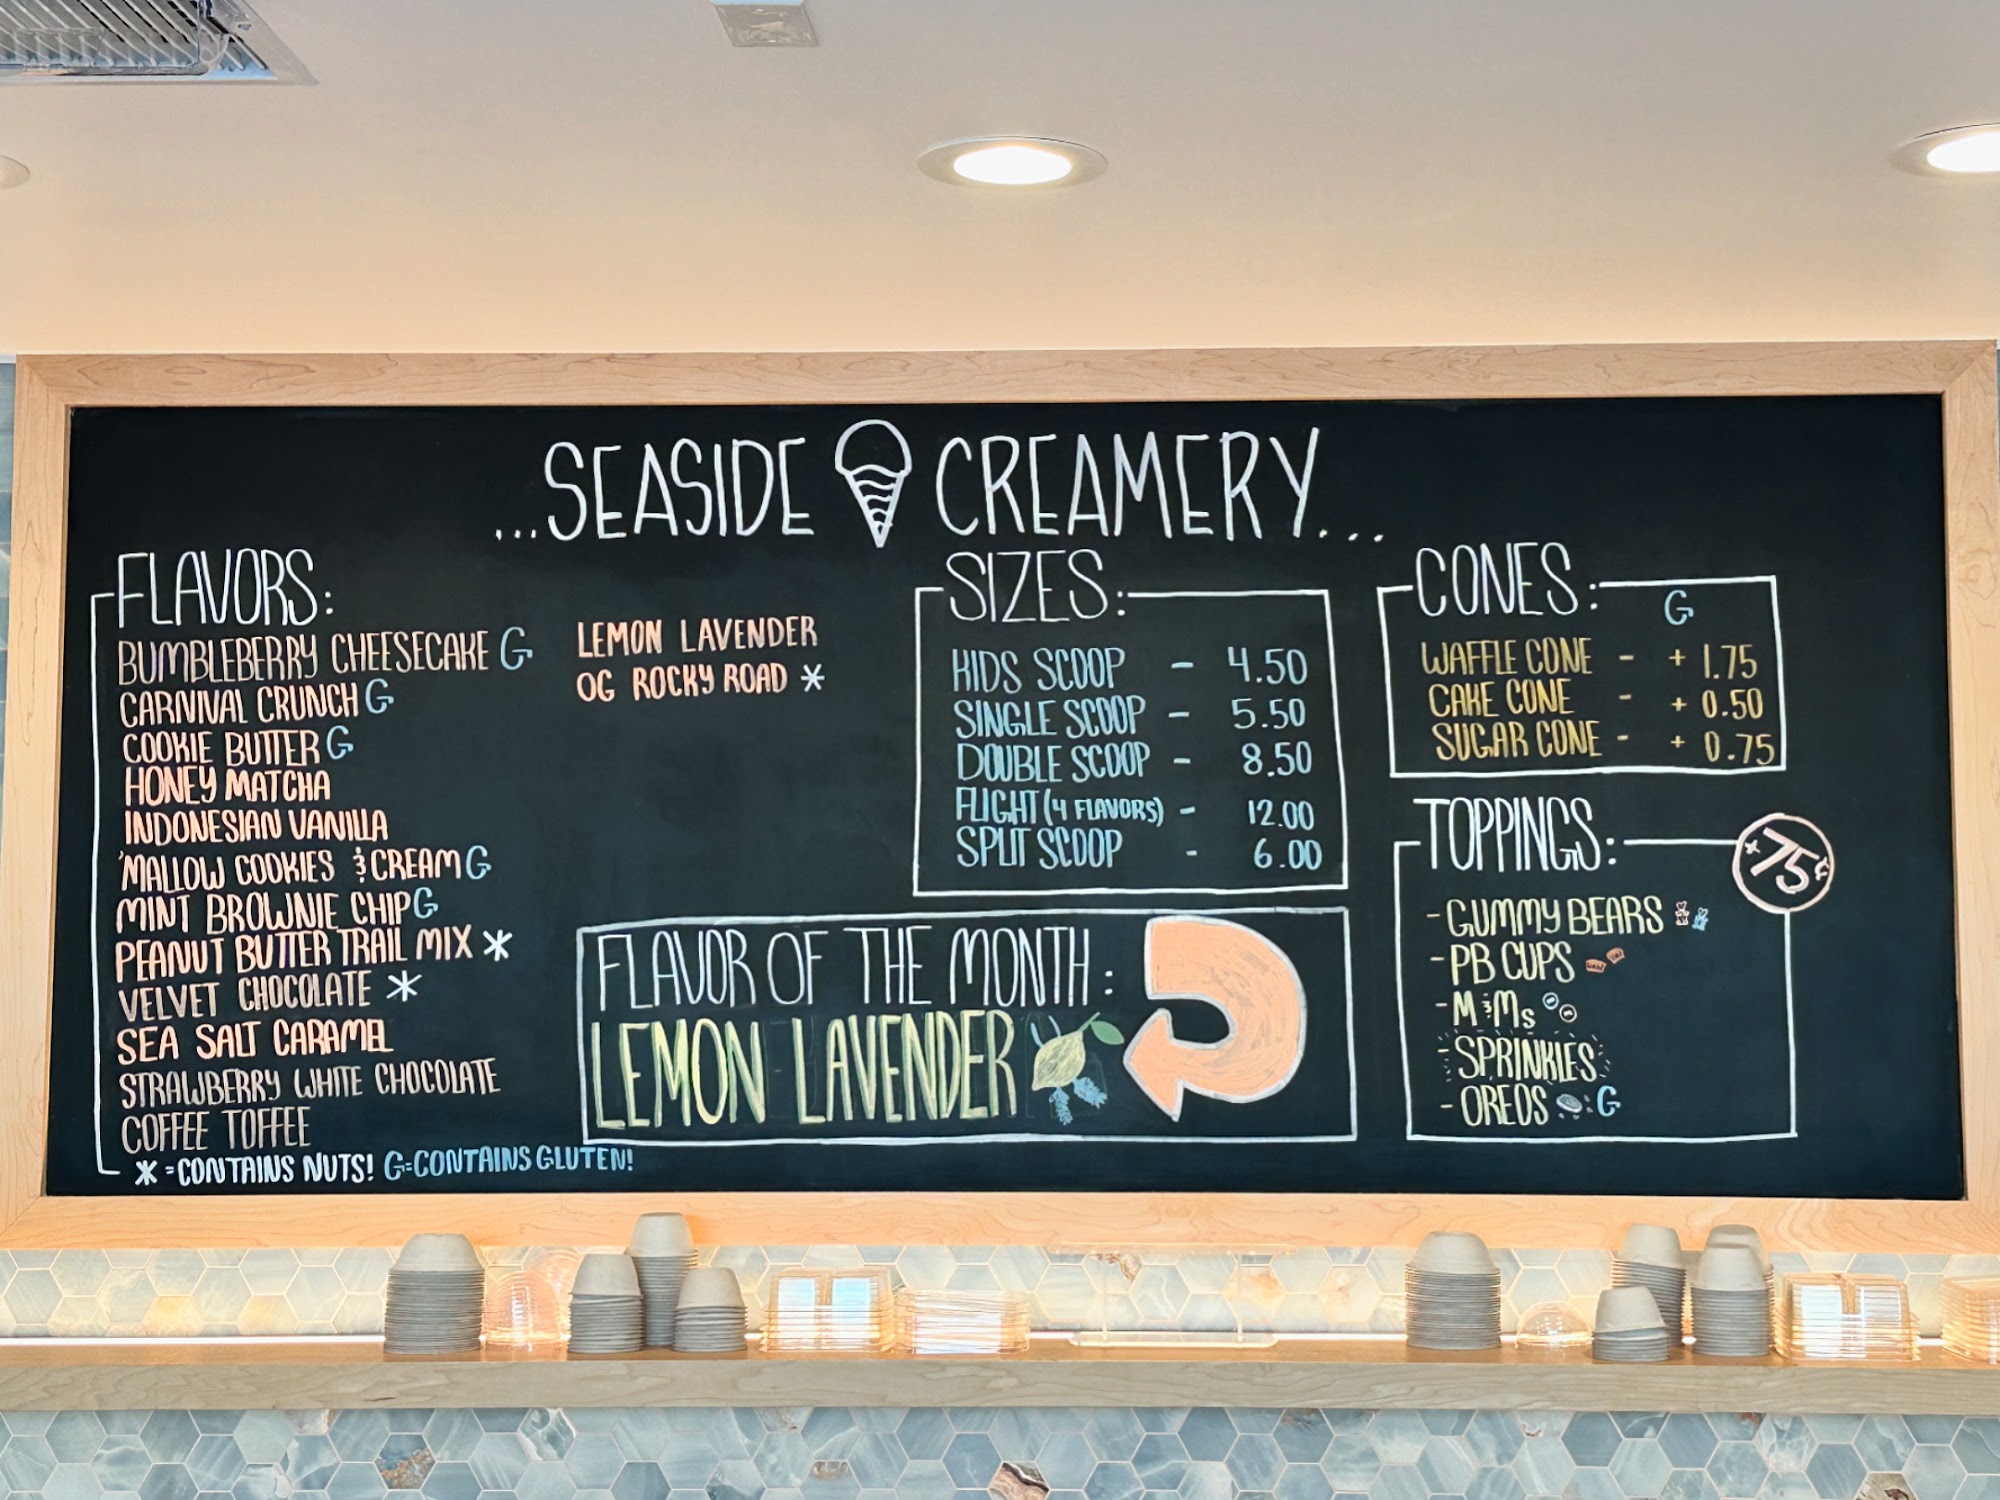 ...SEASIDE CREAMERY...
FLAVORS:
BUMBLEBERRY CHEESECAKE G
CARNIVAL CRUNCH G
COOKIE BUTTER G
HONEY MATCHA
INDONESIAN VANILLA
'MALLOW COOKIES & CREAM G
MINT BROWNIE CHIP G
PEANUT BUTTER TRAIL MIX *
VELVET CHOCOLATE *
SEA SALT CARAMEL
STRAWBERRY WHITE CHOCOLATE
COFFEE TOFFEE
* =CONTAINS NUTS! G=CONTAINS GLUTEN!
LEMON LAVENDER
OG ROCKY ROAD *
FLAVOR OF THE MONTH:
LEMON LAVENDER
SIZES:
KIDS SCOOP - 4.50
SINGLE SCOOP - 5.50
DOUBLE SCOOP - 8.50
FLIGHT (4 FLAVORS) - 12.00
SPLIT SCOOP - 6.00
CONES:
G
WAFFLE CONE - + 1.75
CAKE CONE - + 0.50
SUGAR CONE - + 0.75
TOPPINGS: +75¢
- GUMMY BEARS
- PB CUPS
- M & Ms
- SPRINKLES
- OREOS G